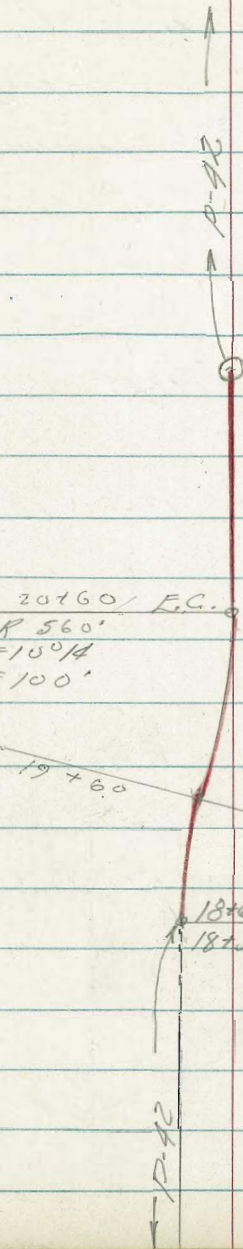 P-42
20+60 E.C.
R 560'
=10°14
=100'
19+60
18+
18+
P-42